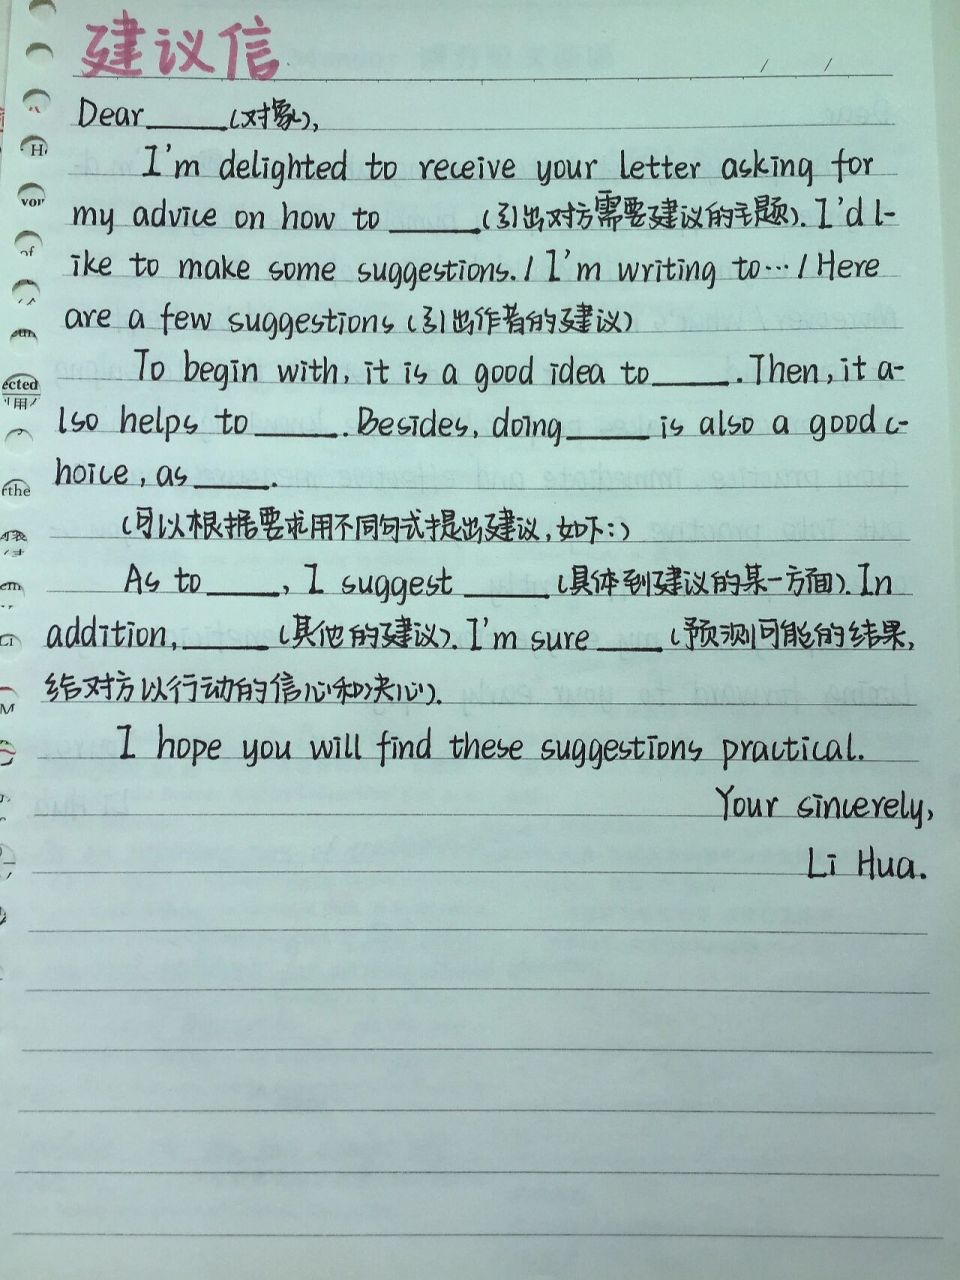 建议信
Dear_____(对象),
I'm delighted to receive your letter asking for
my advice on how to _____(引出对方需要建议的主题). I'd l-
ike to make some suggestions. / I'm writing to… / Here
are a few suggestions (引出作者的建议)
To begin with, it is a good idea to_____. Then, it a-
lso helps to_____. Besides, doing_____is also a good c-
hoice, as_____.
(可以根据要求用不同句式提出建议,如下:)
As to_____, I suggest _____(具体到建议的某一方面). In
addition,_____(其他的建议). I'm sure ____(预测可能的结果,
给对方以行动的信心和决心).
I hope you will find these suggestions practical.
Your sincerely,
Li Hua.